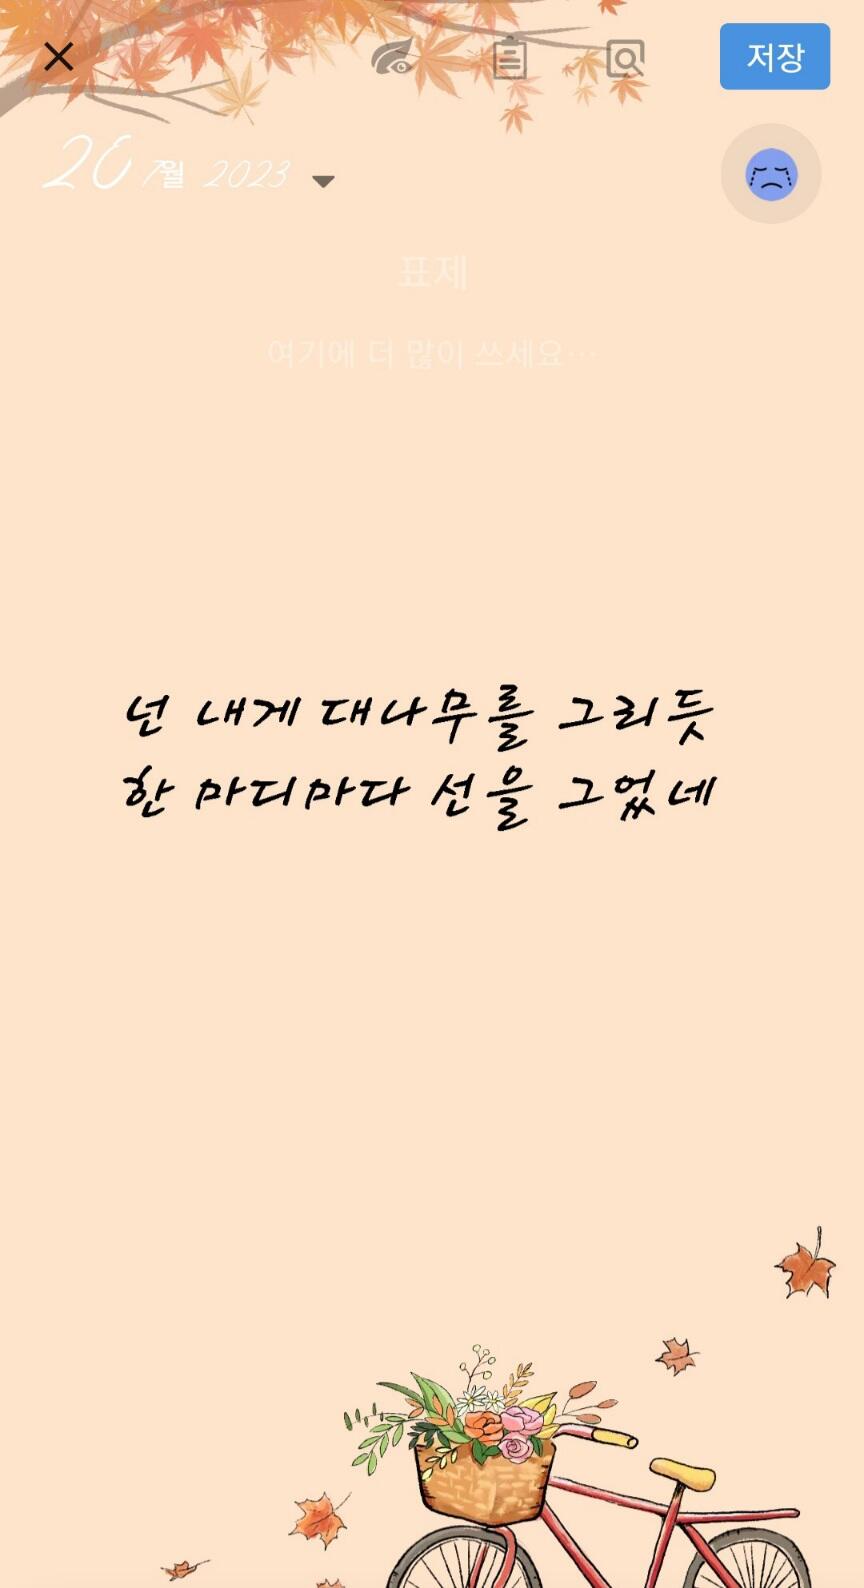 저장
20 7월 2023
표제
여기에 더 많이 쓰세요…
넌 내게 대나무를 그리듯
한 마디마다 선을 그었네